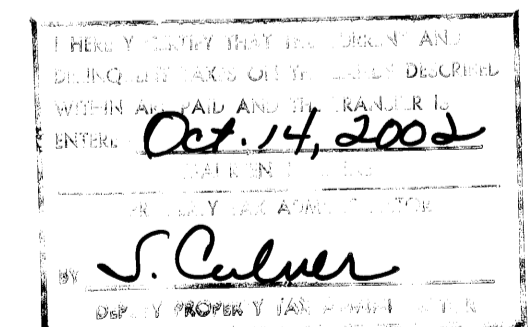 I HEREBY CERTIFY THAT THE CURRENT AND
DELINQUENT TAXES ON THE LANDS DESCRIBED
WITHIN ARE PAID AND THE TRANSFER IS
ENTERED Oct. 14, 2002
PROPERTY TAX ADMINISTRATOR
BY S. Culver
DEPUTY PROPERTY TAX ADMINISTRATOR